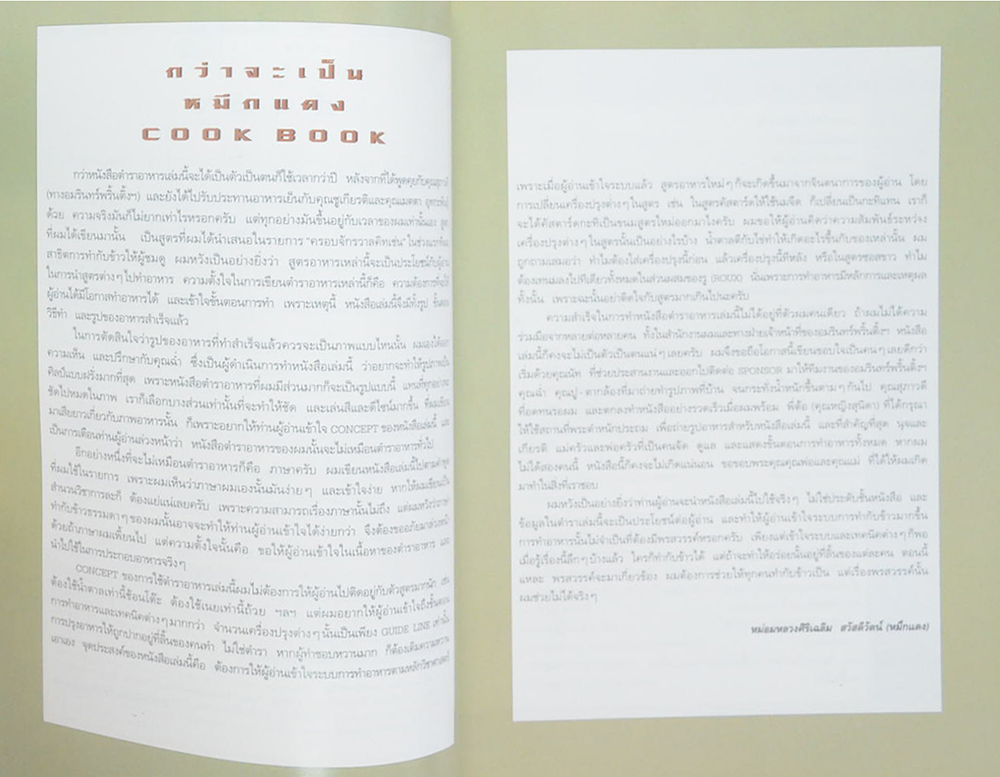 กว่าจะเป็น
หมึกแดง
COOK BOOK
กว่าหนังสือตำราอาหารเล่มนี้จะได้เป็นตัวเป็นตนก็ใช้เวลากว่าปี หลังจากที่ได้พูดคุยกับคุณสุภาวดี
(ทางอมรินทร์พริ้นติ้งฯ) และยังได้ไปรับประทานอาหารเย็นกับคุณชูเกียรติและคุณเมตตา อุทกะพันธุ์
ด้วย ความจริงมันก็ไม่ยากเท่าไรหรอกครับ แต่ทุกอย่างมันขึ้นอยู่กับเวลาของผมเท่านั้นเอง สูตร
ที่ผมได้เขียนมานั้น เป็นสูตรที่ผมได้นำเสนอในรายการ "ครอบจักรวาลคิทเช่น" ในช่วงแรกที่ผม
สาธิตการทำกับข้าวให้ผู้ชมดู ผมหวังเป็นอย่างยิ่งว่า สูตรอาหารเหล่านี้จะเป็นประโยชน์กับผู้อ่าน
ในการนำสูตรต่างๆ ไปทำอาหาร ความตั้งใจในการเขียนตำราอาหารเหล่านี้ก็คือ ความต้องการที่จะให้
ผู้อ่านได้มีโอกาสทำอาหารได้ และเข้าใจขั้นตอนการทำ เพราะเหตุนี้ หนังสือเล่มนี้จึงมีทั้งรูป ขั้นตอน
วิธีทำ และรูปของอาหารสำเร็จแล้ว
ในการตัดสินใจว่ารูปของอาหารที่ทำสำเร็จแล้วควรจะเป็นภาพแบบไหนนั้น ผมเองได้ออก
ความเห็น และปรึกษากับคุณฉ่ำ ซึ่งเป็นผู้ดำเนินการทำหนังสือเล่มนี้ ว่าอยากจะทำให้รูปภาพเป็น
ศิลป์แบบฝรั่งมากที่สุด เพราะหนังสือตำราอาหารที่ผมมีส่วนมากก็จะเป็นรูปแบบนี้ แทนที่ทุกอย่างจะ
ชัดไปหมดในภาพ เราก็เลือกบางส่วนเท่านั้นที่จะทำให้ชัด และเล่นสีและดีไซน์มากขึ้น ที่ผมเขียน
มาเสียยาวเกี่ยวกับภาพอาหารนั้น ก็เพราะอยากให้ท่านผู้อ่านเข้าใจ CONCEPT ของหนังสือเล่มนี้ และ
เป็นการเตือนท่านผู้อ่านล่วงหน้าว่า หนังสือตำราอาหารของผมนั้นจะไม่เหมือนตำราอาหารทั่วไป
อีกอย่างหนึ่งที่จะไม่เหมือนตำราอาหารก็คือ ภาษาครับ ผมเขียนหนังสือเล่มนี้ไปตามคำพูด
ที่ผมใช้ในรายการ เพราะผมเห็นว่าภาษาผมเองนั้นมันง่ายๆ และเข้าใจง่าย หากให้ผมเขียนเป็น
สำนวนวิชาการละก็ ต้องแย่แน่เลยครับ เพราะความสามารถเรื่องภาษานั้นไม่ถึง แต่ผมหวังว่าภาษา
ทำกับข้าวธรรมดาๆ ของผมนั้นอาจจะทำให้ท่านผู้อ่านเข้าใจได้ง่ายกว่า จึงต้องขออภัยมาล่วงหน้า
ด้วยถ้าภาษาผมเพี้ยนไป แต่ความตั้งใจนั้นคือ ขอให้ผู้อ่านเข้าใจในเนื้อหาของตำราอาหาร และ
นำไปใช้ในการประกอบอาหารจริงๆ
CONCEPT ของการใช้ตำราอาหารเล่มนี้ผมไม่ต้องการให้ผู้อ่านไปติดอยู่กับตัวสูตรมากนัก เช่น
ต้องใช้น้ำตาลเท่านี้ช้อนโต๊ะ ต้องใช้เนยเท่านี้ถ้วย ฯลฯ แต่ผมอยากให้ผู้อ่านเข้าใจถึงขั้นตอน
การทำอาหารและเทคนิคต่างๆ มากกว่า จำนวนเครื่องปรุงต่างๆ นั้นเป็นเพียง GUIDE LINE เท่านั้น
การปรุงอาหารให้ถูกปากอยู่ที่ลิ้นของคนทำ ไม่ใช่ตำรา หากผู้ทำชอบหวานมาก ก็ต้องเติมความหวาน
เอาเอง จุดประสงค์ของหนังสือเล่มนี้คือ ต้องการให้ผู้อ่านเข้าใจระบบการทำอาหารตามหลักวิทยาศาสตร์
เพราะเมื่อผู้อ่านเข้าใจระบบแล้ว สูตรอาหารใหม่ๆ ก็จะเกิดขึ้นมาจากจินตนาการของผู้อ่าน โดย
การเปลี่ยนเครื่องปรุงต่างๆ ในสูตร เช่น ในสูตรคัสตาร์ดให้ใช้นมจืด ก็เปลี่ยนเป็นกะทิแทน เราก็
จะได้คัสตาร์ดกะทิเป็นขนมสูตรใหม่ออกมาไงครับ ผมขอให้ผู้อ่านคิดว่าความสัมพันธ์ระหว่าง
เครื่องปรุงต่างๆ ในสูตรนั้นเป็นอย่างไรบ้าง น้ำตาลตีกับไข่ทำให้เกิดอะไรขึ้นกับของเหล่านั้น ผม
ถูกถามเสมอว่า ทำไมต้องใส่เครื่องปรุงนี้ก่อน แล้วเครื่องปรุงนี้ทีหลัง หรือในสูตรซอสขาว ทำไม
ต้องเทนมลงไปทีเดียวทั้งหมดในส่วนผสมของรู (ROUX) นั่นเพราะการทำอาหารมีหลักการและเหตุผล
ทั้งนั้น เพราะฉะนั้นอย่าติดใจกับสูตรมากเกินไปนะครับ
ความสำเร็จในการทำหนังสือตำราอาหารเล่มนี้ไม่ได้อยู่ที่ตัวผมคนเดียว ถ้าผมไม่ได้ความ
ร่วมมือจากหลายต่อหลายคน ทั้งในสำนักงานผมและทางฝ่ายเจ้าหน้าที่ของอมรินทร์พริ้นติ้งฯ หนังสือ
เล่มนี้ก็คงจะไม่เป็นตัวเป็นตนแน่ๆ เลยครับ ผมจึงขอถือโอกาสนี้เขียนขอบใจเป็นคนๆ เลยดีกว่า
เริ่มด้วยคุณนัท ที่ช่วยประสานงานและออกไปติดต่อ SPONSOR มาให้ทีมงานของอมรินทร์พริ้นติ้งฯ
คุณฉ่ำ คุณปู - ตากล้องที่มาถ่ายทำรูปภาพที่บ้าน จนกระทั่งน้ำหนักขึ้นตามๆ กันไป คุณสุภาวดี
ที่อดทนรอผม และตกลงทำหนังสืออย่างรวดเร็วเมื่อผมพร้อม พี่ต้อ (คุณหญิงสุนิดา) ที่ได้กรุณา
ให้ใช้สถานที่พระตำหนักประถม เพื่อถ่ายรูปอาหารสำหรับหนังสือเล่มนี้ และที่สำคัญที่สุด นุจและ
เกียรติ แม่ครัวและพ่อครัวที่เป็นคนจัด ดูแล และแสดงขั้นตอนการทำอาหารทั้งหมด หากผม
ไม่ได้สองคนนี้ หนังสือนี้ก็คงจะไม่เกิดแน่นอน ขอขอบพระคุณคุณพ่อและคุณแม่ ที่ได้ให้ผมเกิด
มาทำในสิ่งที่เราชอบ
ผมหวังเป็นอย่างยิ่งว่าท่านผู้อ่านจะนำหนังสือเล่มนี้ไปใช้จริงๆ ไม่ใช่ประดับชั้นหนังสือ และ
ข้อมูลในตำราเล่มนี้จะเป็นประโยชน์ต่อผู้อ่าน และทำให้ผู้อ่านเข้าใจระบบการทำกับข้าวมากขึ้น
การทำอาหารนั้นไม่จำเป็นที่ต้องมีพรสวรรค์หรอกครับ เพียงแต่เข้าใจระบบและเทคนิคต่างๆ ก็พอ
เมื่อรู้เรื่องนี้ลึกๆ บ้างแล้ว ใครก็ทำกับข้าวได้ แต่ถ้าจะทำให้อร่อยนั้นอยู่ที่ลิ้นของแต่ละคน ตอนนี้
แหละ พรสวรรค์จะมาเกี่ยวข้อง ผมต้องการช่วยให้ทุกคนทำกับข้าวเป็น แต่เรื่องพรสวรรค์นั้น
ผมช่วยไม่ได้จริงๆ
หม่อมหลวงศิริเฉลิม สวัสดิวัตน์ (หมึกแดง)